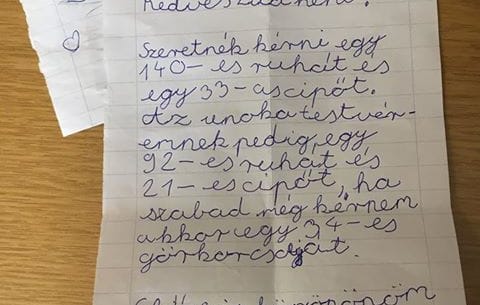 Szeretnék kérni egy
140-es ruhát és
egy 33-as cipőt.
Az unokatestvér-
emnek pedig egy
92-es ruhát és
21-es cipőt, ha
szabad még kérnem
akkor egy 34-es
görkorcsoját.